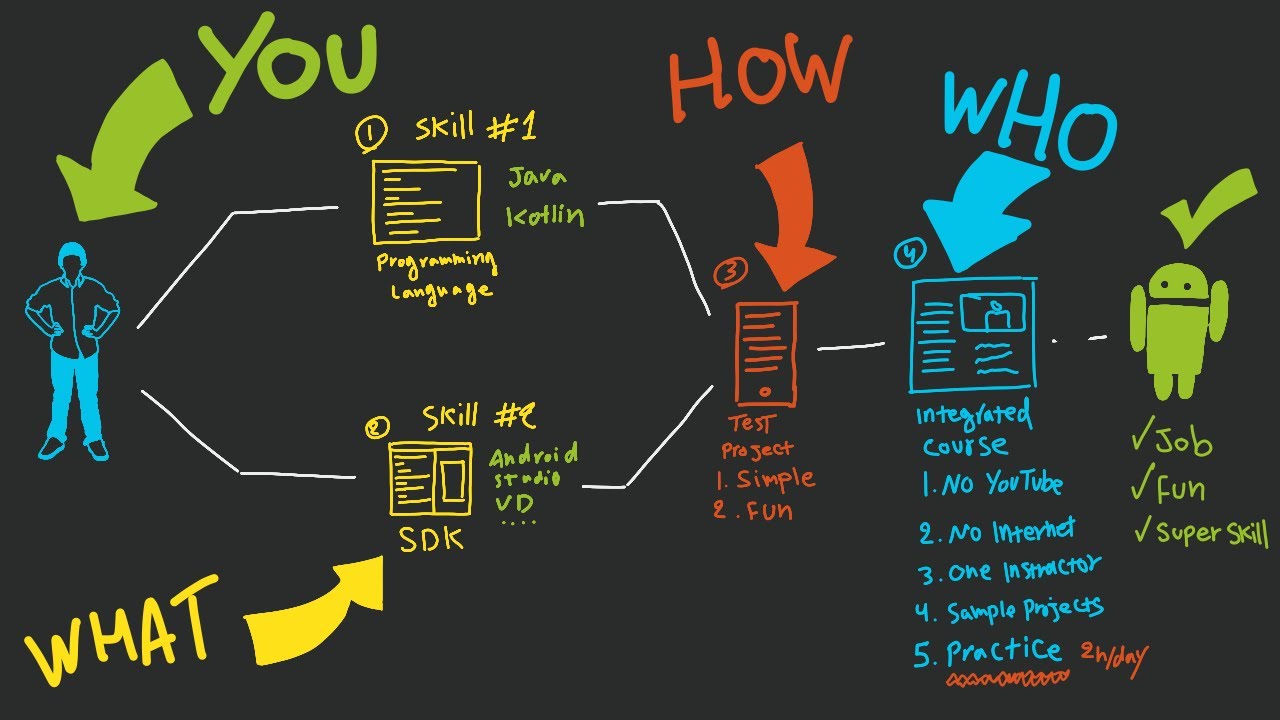 YOU
HOW
WHO
WHAT
① Skill #1
Java
Kotlin
Programming
Language
② Skill #2
Android
Studio
VD
....
SDK
③
Test
Project
1. Simple
2. Fun
④
Integrated
Course
1. No YouTube
2. No Internet
3. One Instractor
4. Sample Projects
5. Practice 2h/day
✓ Job
✓ Fun
✓ Super Skill